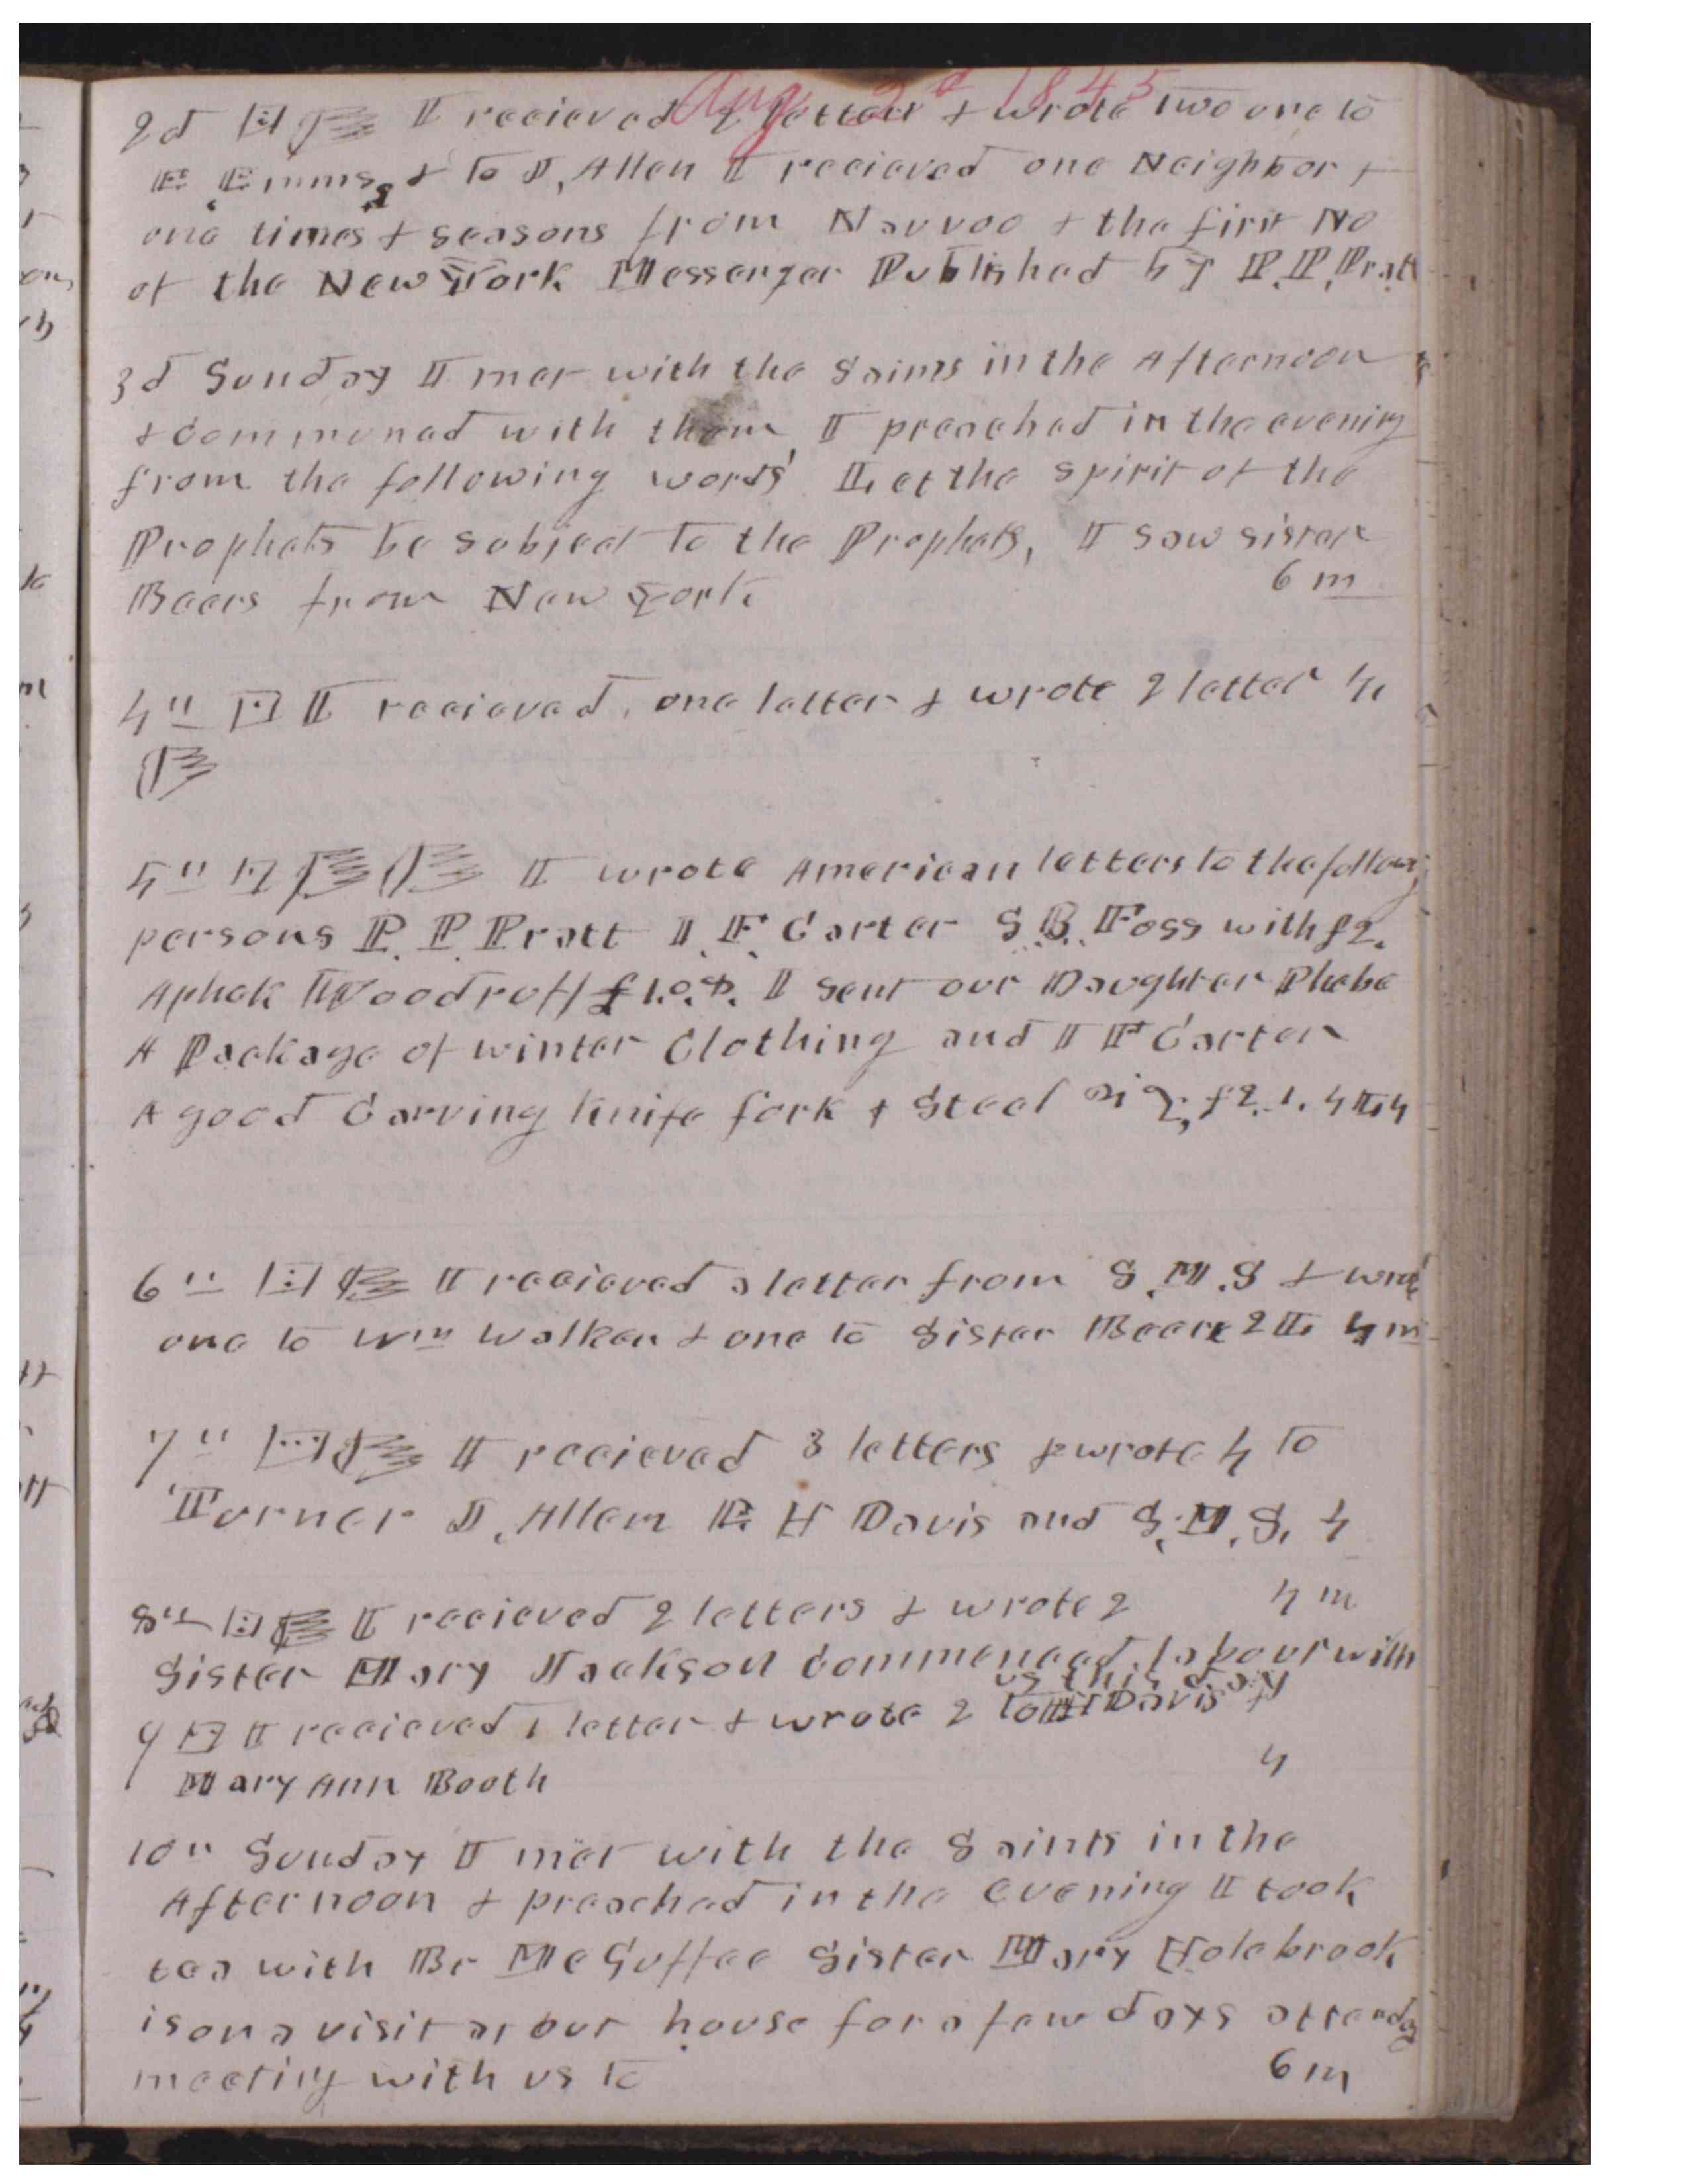 Aug 2d 1845
2d I recieved 2 letters & wrote two one to
E, Emms, & to J, Allen I recieved one Neighbor &
one times & seasons from Nauvoo & the first No
of the New York Messenger Published by P. P. Pratt
3d Sunday I met with the Saints in the Afternoon
& communed with them, I preached in the evening
from the following words Let the spirit of the
Prophets be subject to the Prophets, I saw sister
Beers from New York.
6 m
4" I recieved one letter & wrote 2 letter 4,
5" I wrote American letters to the follow
persons P. P. Pratt I. F. Carter S. B. Foss with £2.
Aphek Woodruff £1.0.8. I sent our Daughter Phebe
A Package of winter Clothing and I F Carter
A good Carving knife fork & Steel £2.1.
6" I recieved a letter from S. M. S &
one to Wm Walker & one to Sister Beers 2 L 4 m
7" I recieved 3 letters & wrote 4 to
Turner J, Allen E H Davis and S. M. S. 4
8" I recieved 2 letters & wrote 2 4 m
Sister Mary Jackson commenced labour with
us this day
9 I recieved 1 letter & wrote 2 to Davis &
Mary Ann Booth 4
10" Sunday I met with the Saints in the
Afternoon & preached in the evening I took
tea with Br McGuffee Sister Mary Holebrook
is on a visit at our house for a few days attendg
meeting with us to 6 m